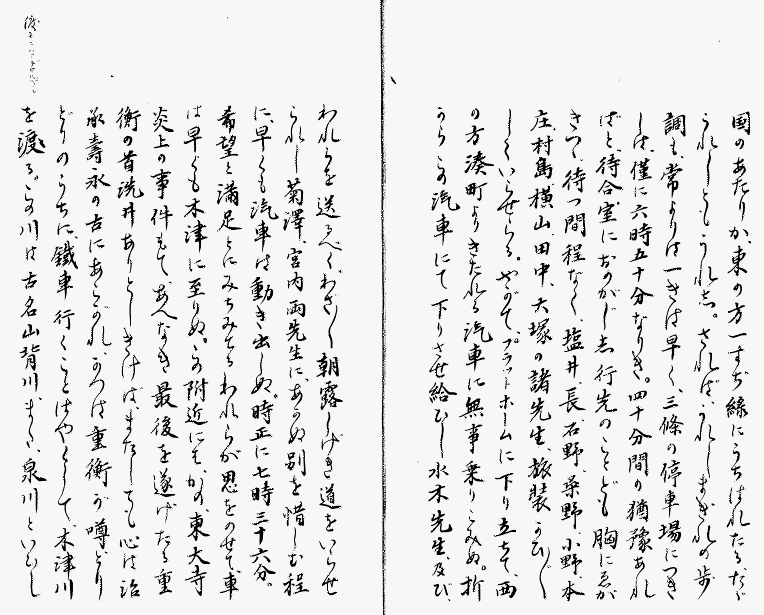 国のあたりか、東の方一すぢ緑にうちはれたる、など
うれしともうれし。されば、うれしまぎれの歩
調も、常よりは一きは早く、三條の停車場につき
しは、僅に六時五十分なりき。四十分間の猶豫あれ
ばと、待合室におのがじし行先のことども胸にゑが
きつゝ待つ間程なく、塩井、長石野、桑野、小野、本
庄、村島、横山、田中、大塚の諸先生、旅装かひ〴〵
しくいらせらる。やがて、プラットホームに下り立ちて、西
の方湊町よりきたれる汽車に無事乗りこみぬ。折
からこの汽車にて下りさせ給ひし水木先生、及び、
われらを送るべくわざ〳〵朝露しげき道をいらせ
られし菊澤、宮内両先生に、あかぬ別を惜しむ程
に、早くも汽車は動き出しぬ。時正に七時三十六分。
希望と満足とにみちみてるわれらが思をのせて、車
は早くも木津に至りぬ。この附近にて、かの東大寺
炎上の事件もてあへなき最後を遂げたる重
衡の首洗井ありとしきけばまたしても心は治
承壽永の古にあこがれ、かつは重衡が噂とり
どりのうちに、鐵車行くことはやくして、木津川
を渡る。この川は古名山背川、また、泉川といひし